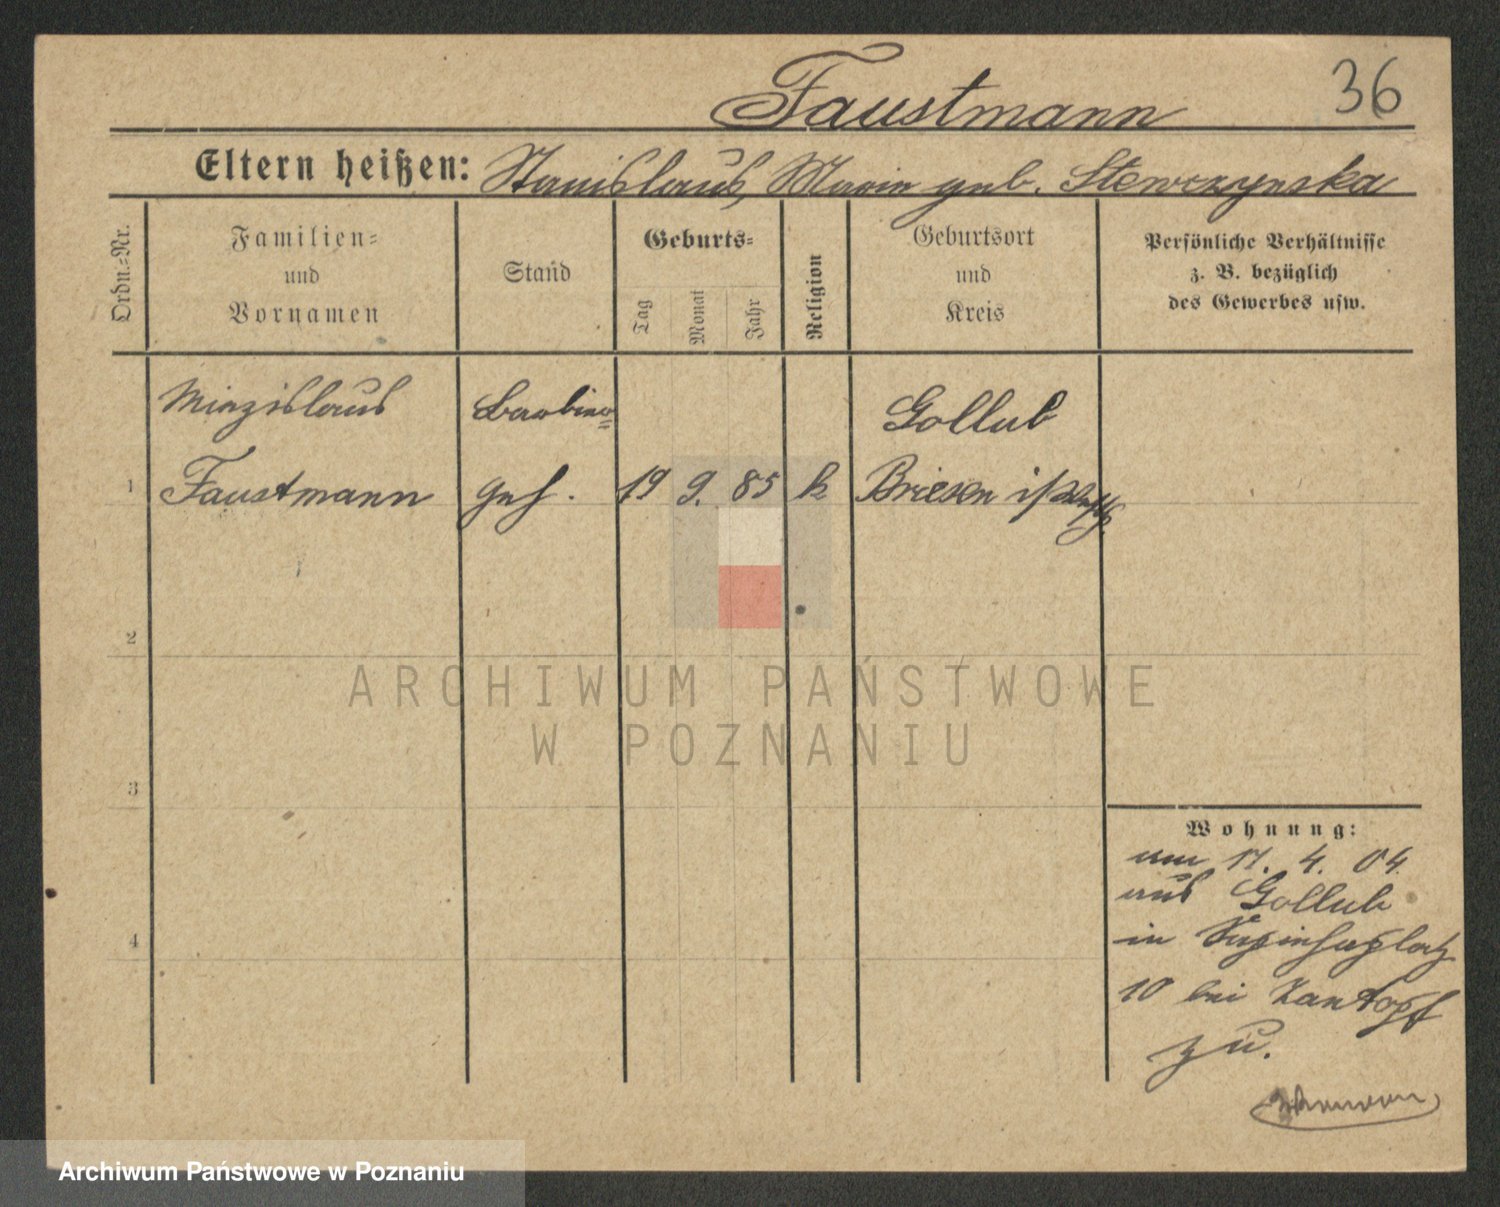 Faustmann 36
Eltern heißen: Stanislaus, Marie geb. Stewczynska
Ordn.-Nr.
Familien- und Vornamen
Stand
Geburts-
Tag
Monat
Jahr
Religion
Geburtsort und Kreis
Persönliche Verhältnisse
z. B. bezüglich
des Gewerbes usw.
Miezislaus Barbier= Gollub
1 Faustmann geh. 19 9. 85 k Briesen
2
3
4
Wohnung:
am 17. 4. 04.
aus Gollub
in
10 bei Kantopf
zu.
ARCHIWUM PAŃSTWOWE
W POZNANIU
Archiwum Państwowe w Poznaniu